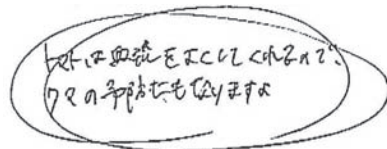 トマトは血流をよくしてくれるので、
クマの予防にも なりますよ